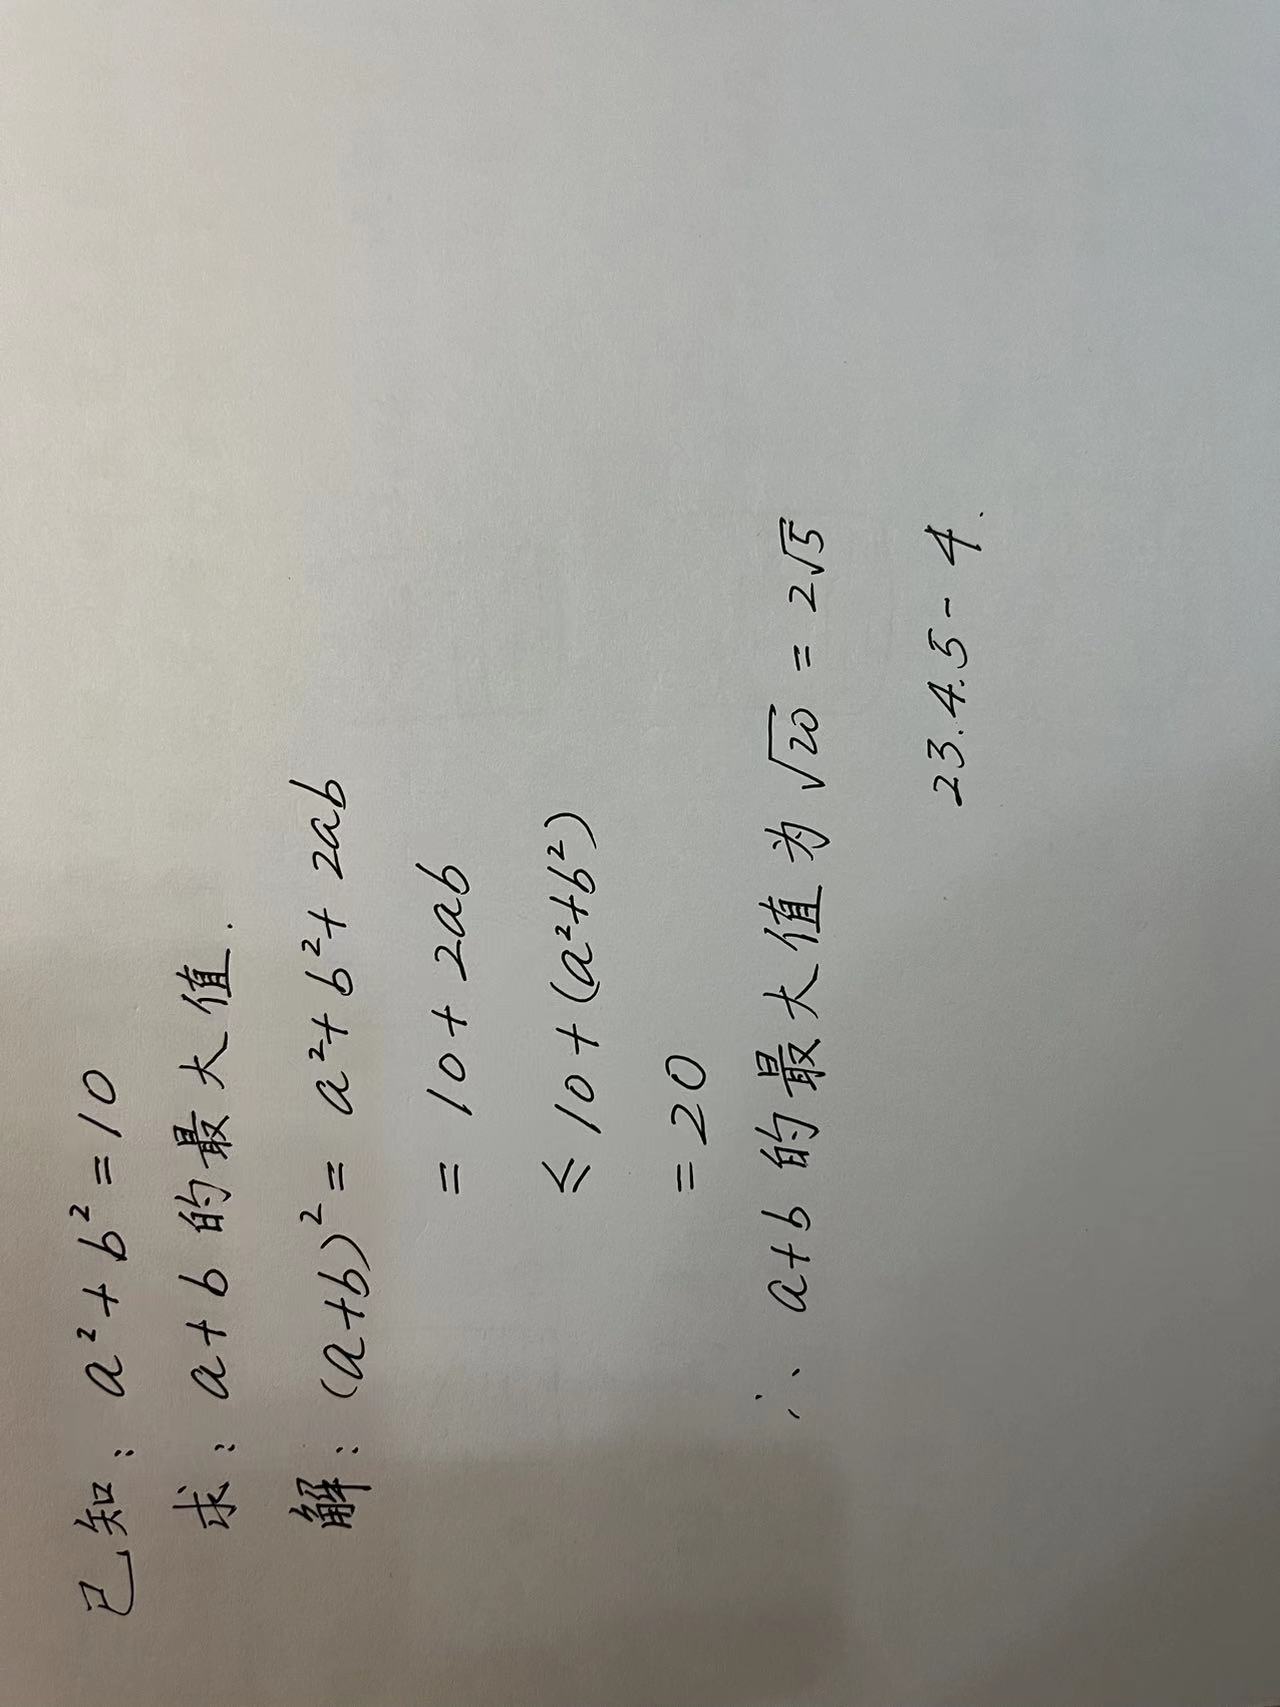 已知: a²+b²=10
求: a+b的最大值.
解: (a+b)²= a²+b²+2ab
= 10+2ab
≤ 10+(a²+b²)
=20
∴ a+b的最大值为√20 = 2√5
23.4.5-4.